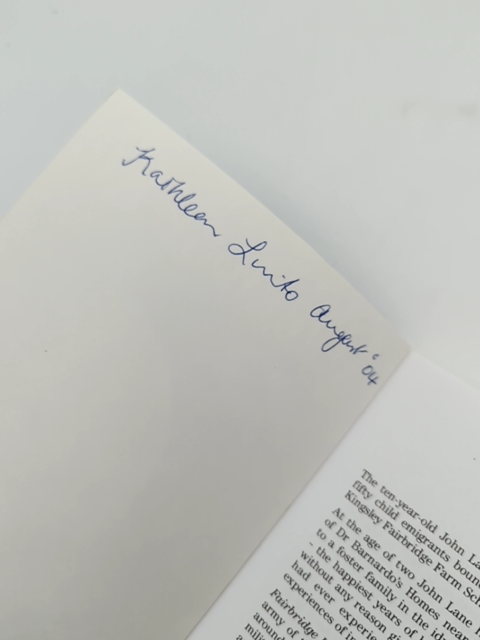 Kathleen Linto August '04
The ten-year-old John La
fifty child emigrants boun
Kingsley Fairbridge Farm Sch
At the age of two John Lane
of Dr Barnardo's Homes near
to a foster family in the id
– the happiest years of
without any reason g
had ever experi
experiences of in
Fairbridge
army of
around
mili